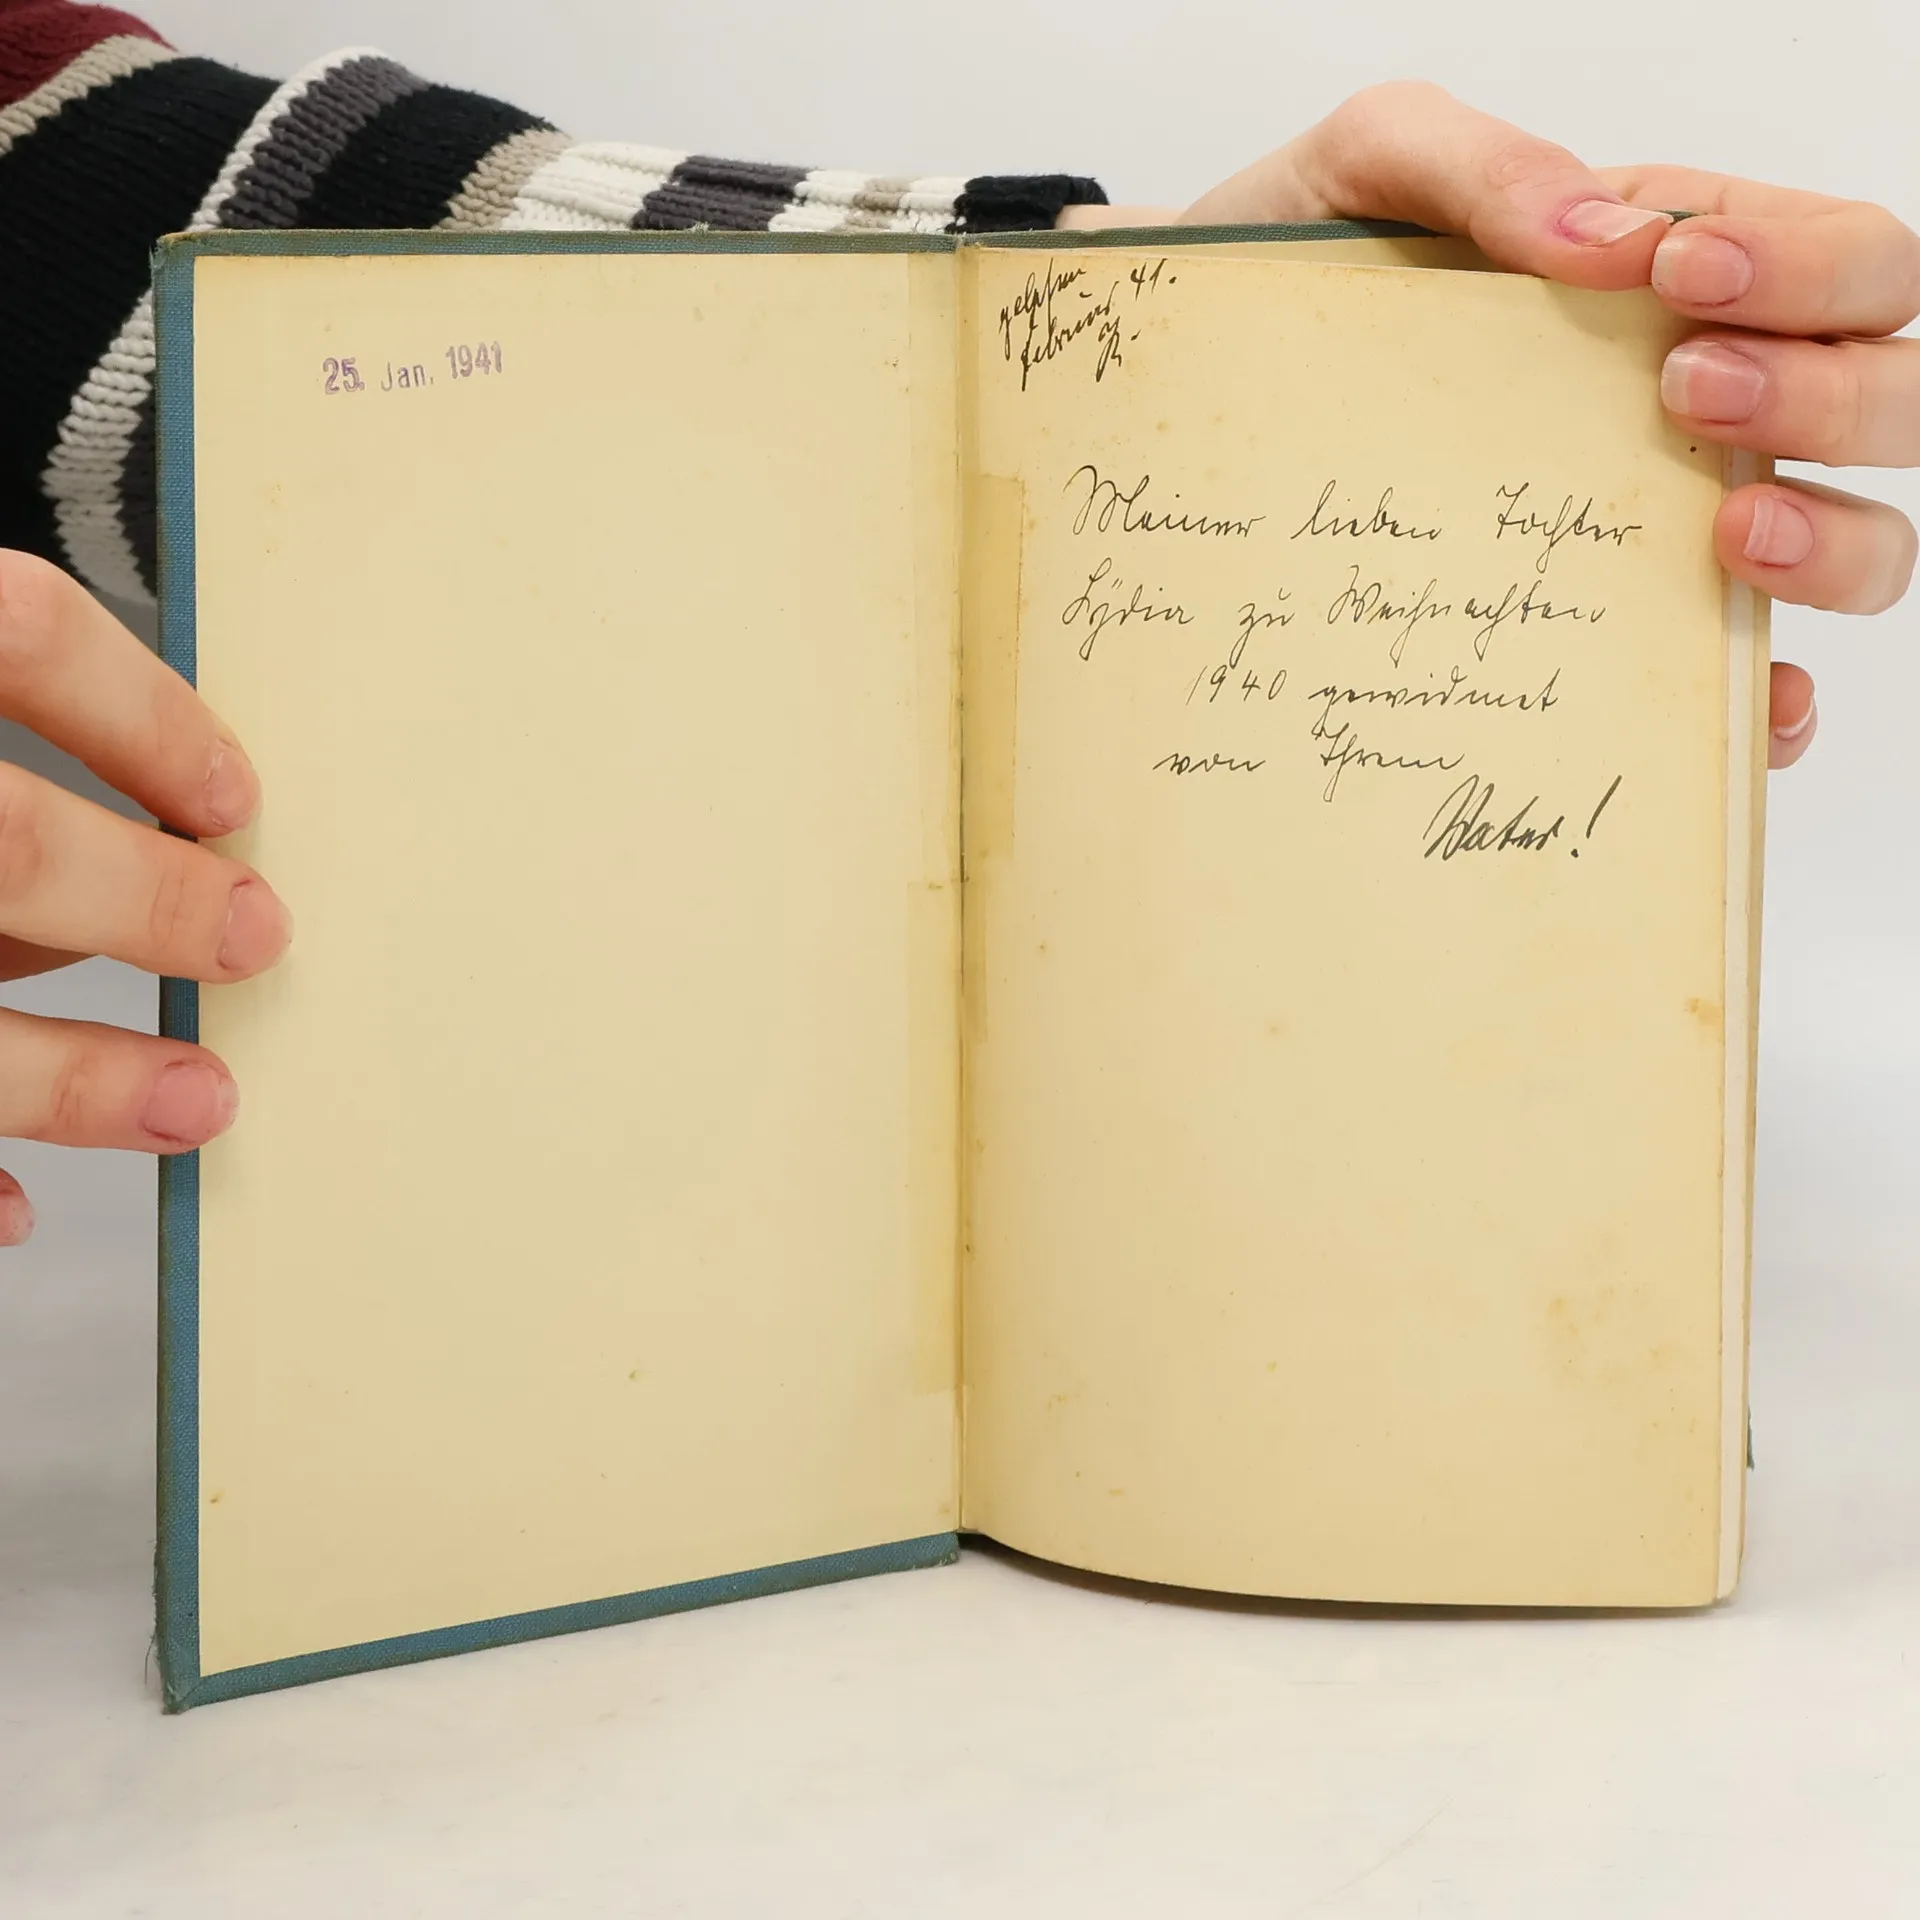 25. Jan. 1941
gelesen
Februar 41.
Meiner lieben Tochter
Lydia zu Weihnachten
1940 gewidmet
von Ihrem
Vater!